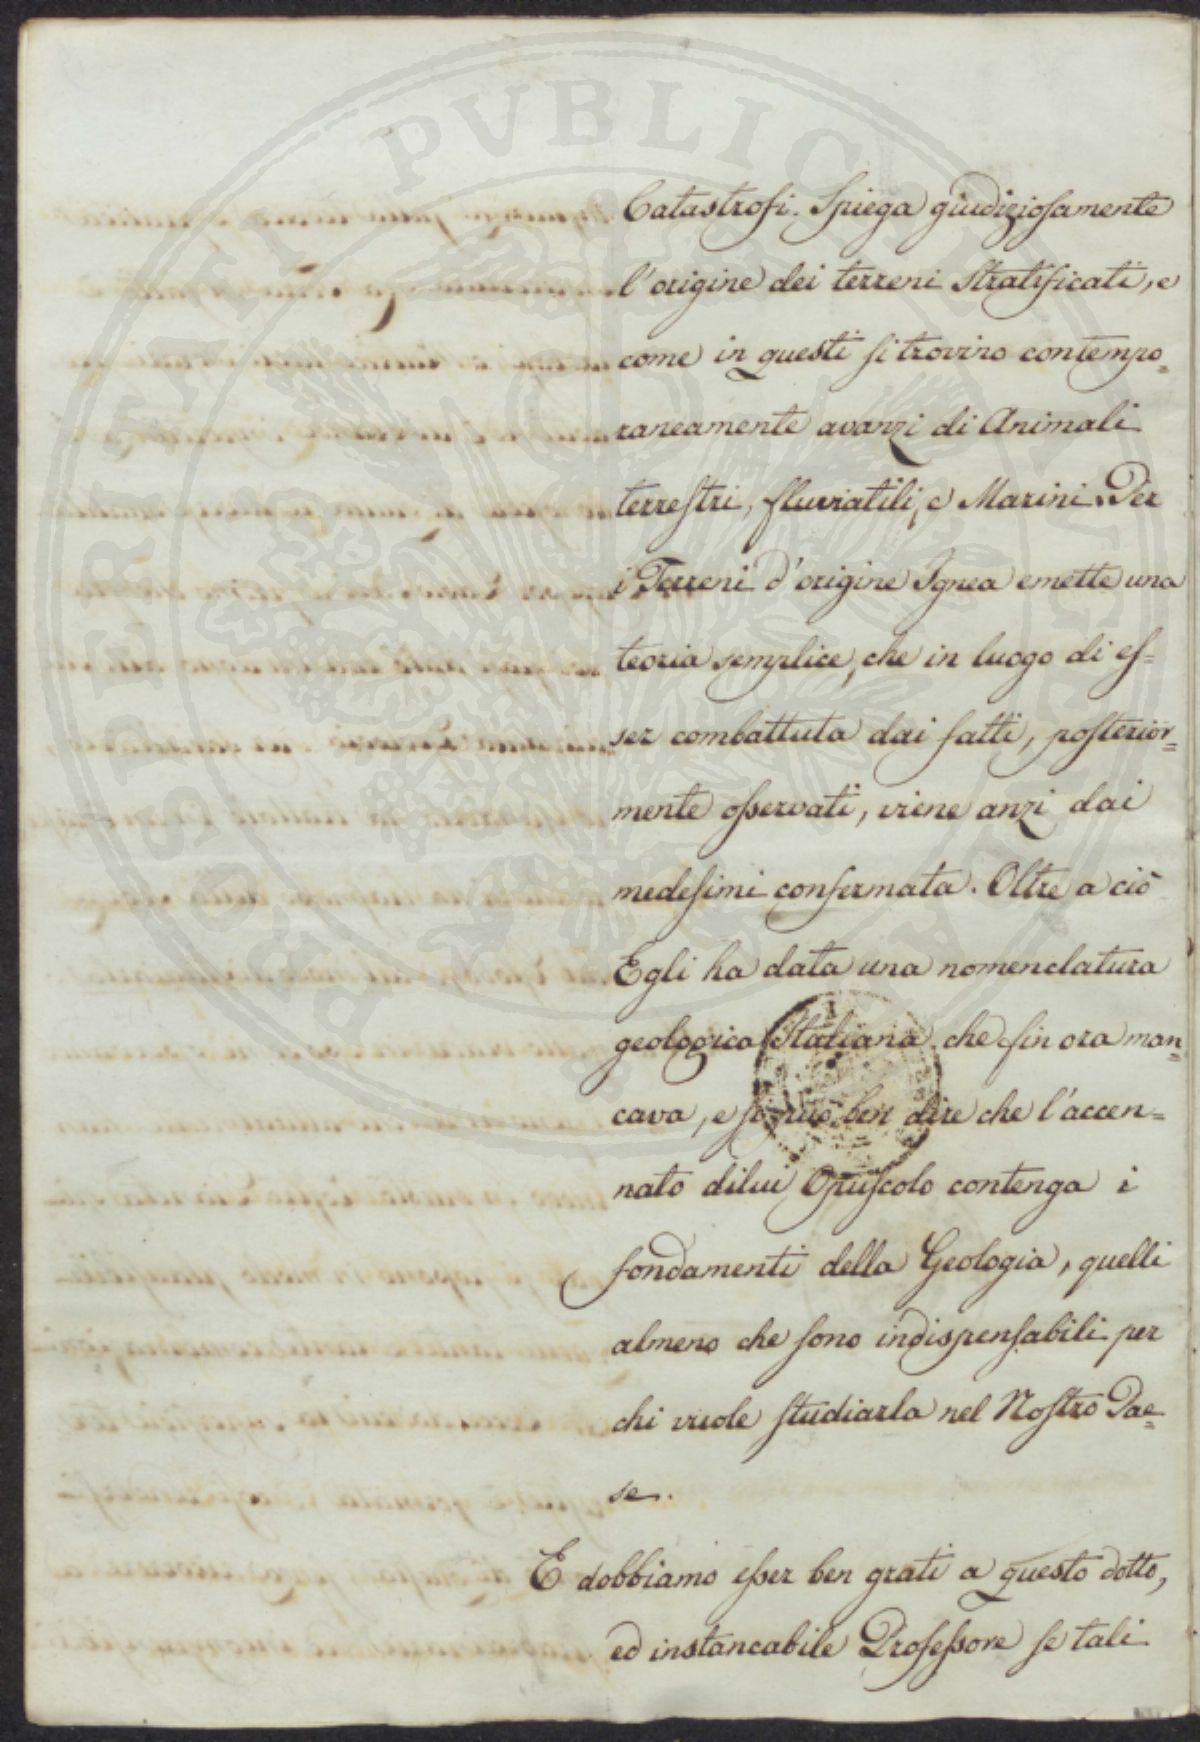 Catastrofi. Spiega giudiziosamente
l'origine dei terreni stratificati, e
come in questi si trovino contempo=
raneamente avanzi di Animali
terrestri, fluviatili, e Marini. Per
i Terreni d'origine Ignea emette una
teoria semplice, che in luogo di es=
ser combattuta dai fatti, posterior=
mente osservati, viene anzi dai
medesimi confermata. Oltre a ciò
Egli ha data una nomenclatura
geologica Italiana, che fin ora man=
cava, e si può ben dire che l'accen=
nato dilui Opuscolo contenga i
fondamenti della Geologia, quelli
almeno che sono indispensabili per
chi vuole studiarla nel Nostro Pae=
se.
E dobbiamo esser ben grati a questo dotto,
ed instancabile Professore se tali